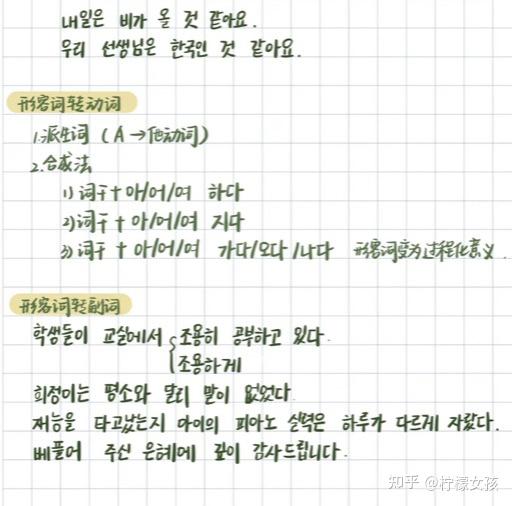 내일은 비가 올 것 같아요.
우리 선생님은 한국인 것 같아요.
形容词转动词
1.派生词 (A→他动词)
2.合成法
1) 词干+아/어/여 하다
2) 词干+아/어/여 지다
3) 词干+아/어/여 가다/오다/나다 形容词变为过程化意义.
形容词转副词
学생들이 교실에서 조용히 공부하고 있다.
조용하게
희정이는 평소와 달리 말이 없었다.
재능을 타고났는지 아이의 피아노 실력은 하루가 다르게 자랐다.
베풀어 주신 은혜에 깊이 감사드립니다.
知乎 @柠檬女孩